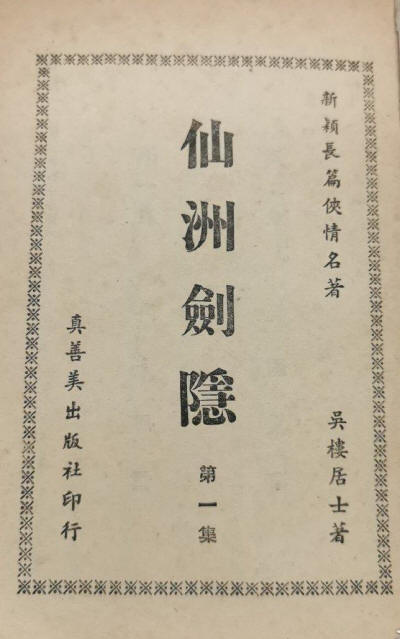 新穎長篇俠情名著
吳樓居士著
仙洲劍隱
第一集
真善美出版社印行